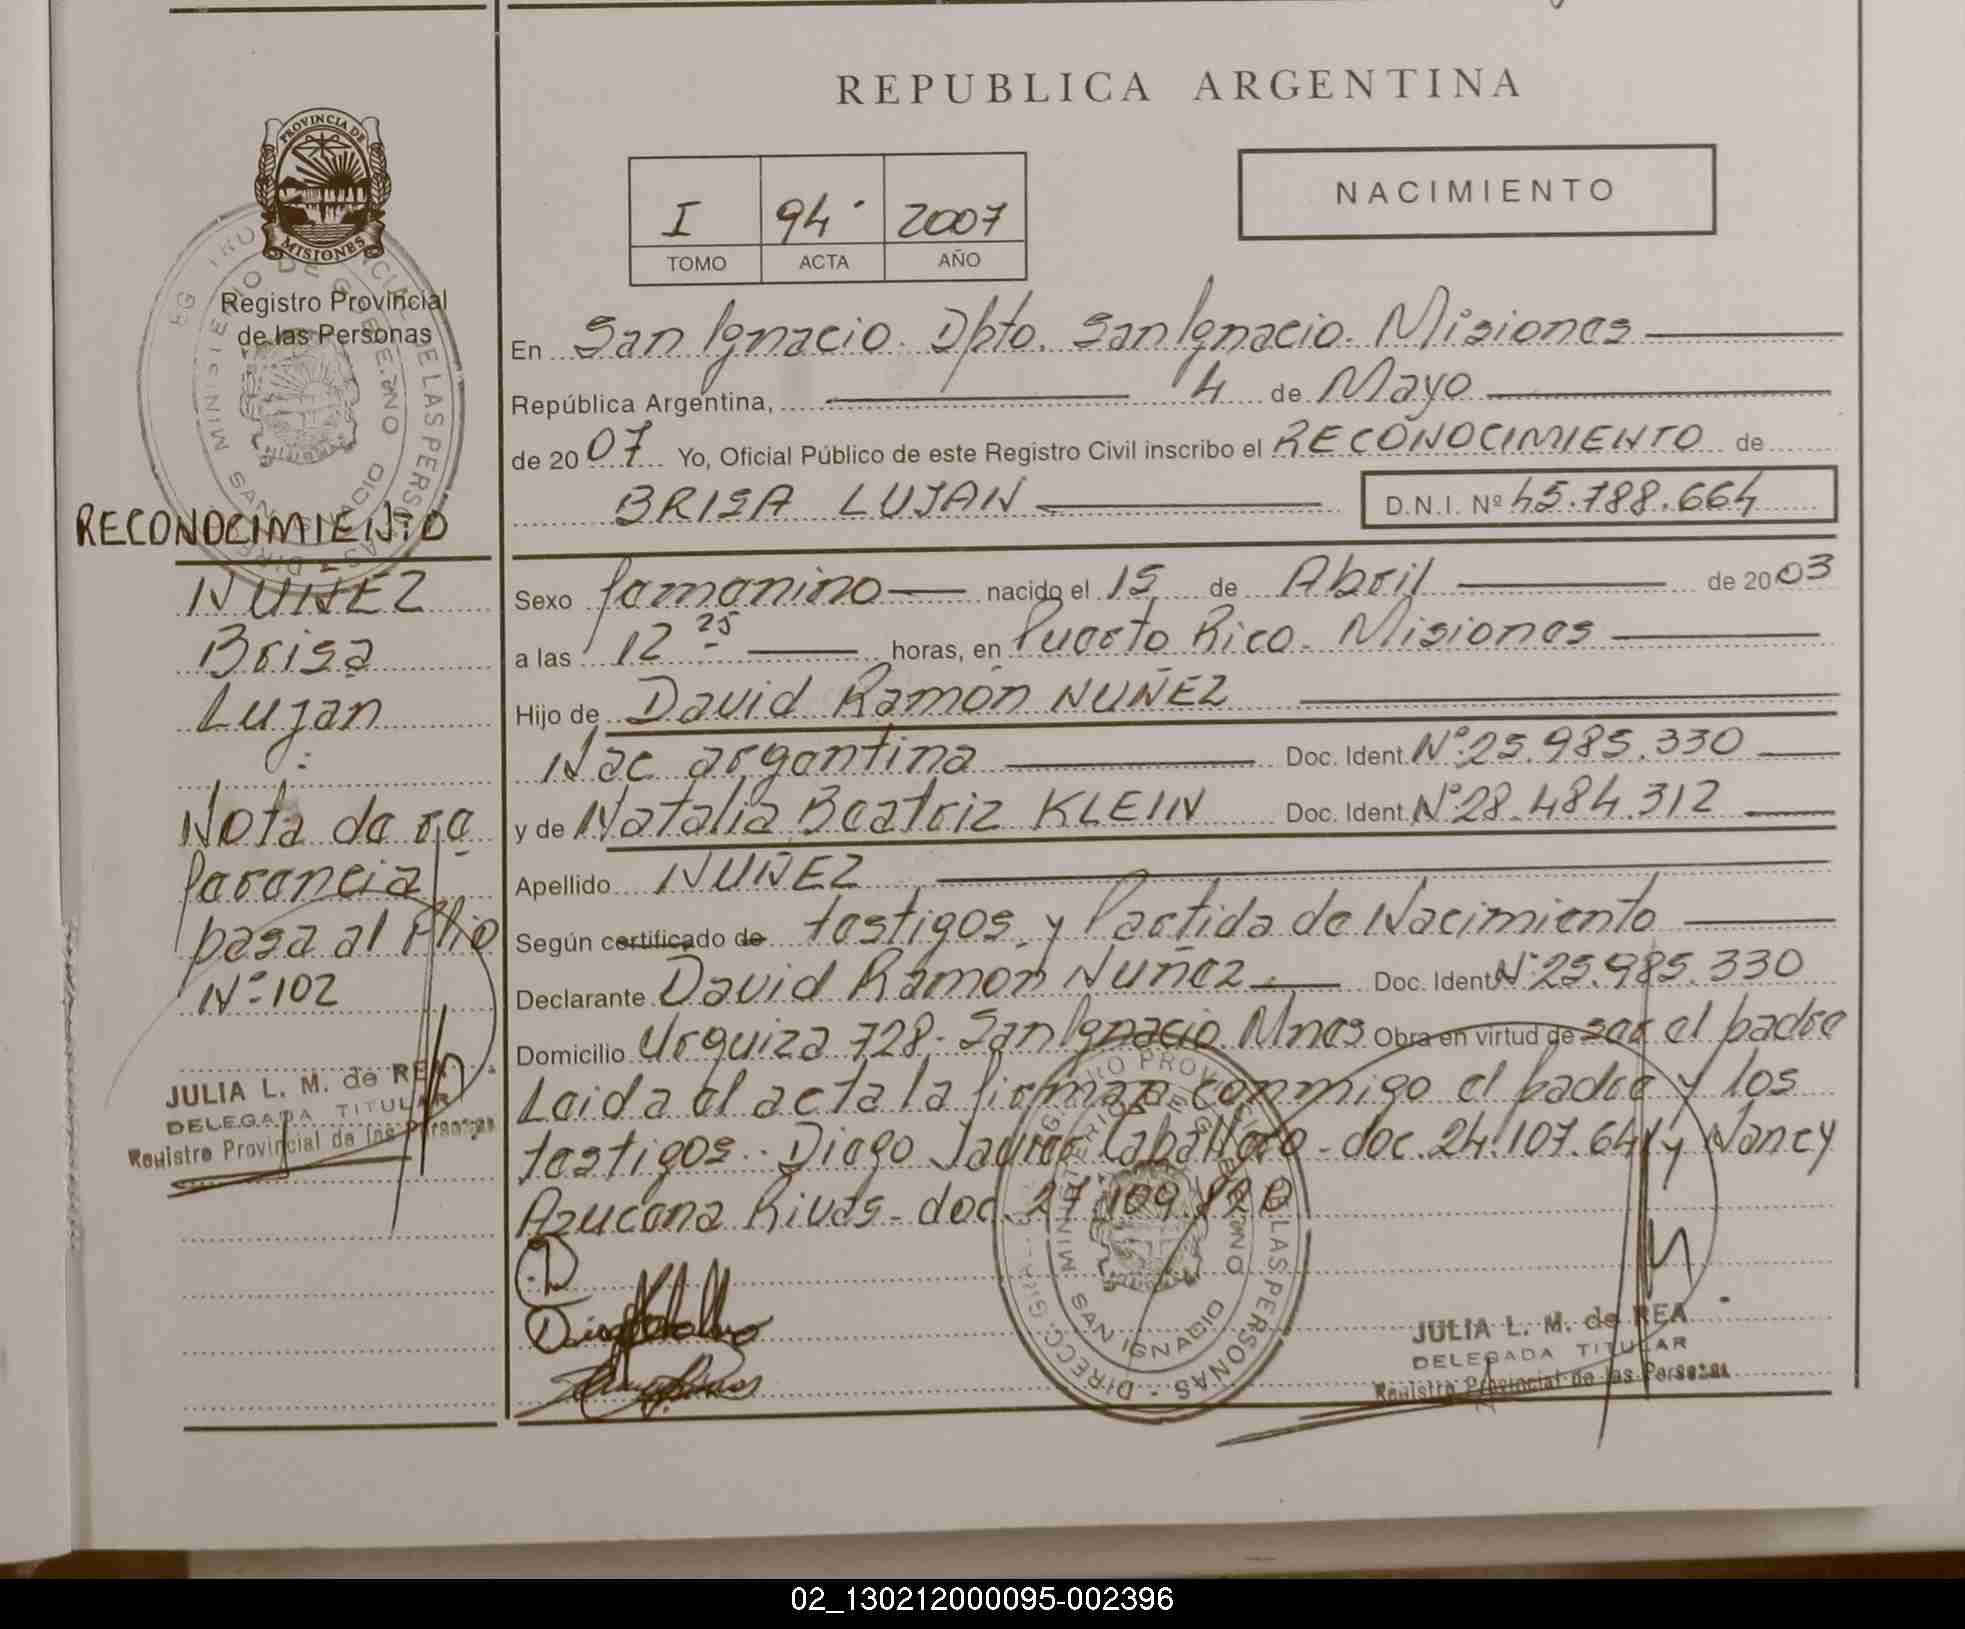 REPUBLICA ARGENTINA
NACIMIENTO
I 94 2007
TOMO ACTA AÑO
PROVINCIA DE
MISIONES
Registro Provincial
de las Personas
RECONOCIMIENTO
NUÑEZ
Brisa
Lujan
Nota de re
ferencia
pasa al folio
Nº 102
JULIA L. M. de REA
DELEGADA TITULAR
Registro Provincial de las Personas
En San Ignacio. Dpto. San Ignacio. Misiones
República Argentina, 4 de Mayo
de 2007 Yo, Oficial Público de este Registro Civil inscribo el RECONOCIMIENTO de
BRISA LUJAN D.N.I. Nº 45.788.664
Sexo femenino nacido el 15 de Abril de 2003
a las 12 25 horas, en Puerto Rico. Misiones
Hijo de David Ramón NUÑEZ
Nac argentina Doc. Ident. Nº 25.985.330
y de Natalia Beatriz KLEIN Doc. Ident. Nº 28.484.312
Apellido NUÑEZ
Según certificado de testigos y Partida de Nacimiento
Declarante David Ramón Nuñez Doc. Ident Nº 25.985.330
Domicilio Urquiza 728 - San Ignacio. Mnes Obra en virtud de ser el padre
Leida el acta la firman conmigo el padre y los
testigos. Diego Caballero - doc. 24.107.641 y Nancy
Azucena Rivas - doc. 27.109.820
MINISTERIO DE GOBIERNO
SAN IGNACIO
JULIA L. M. de REA
DELEGADA TITULAR
Registro Provincial de las Personas
02_130212000095-002396